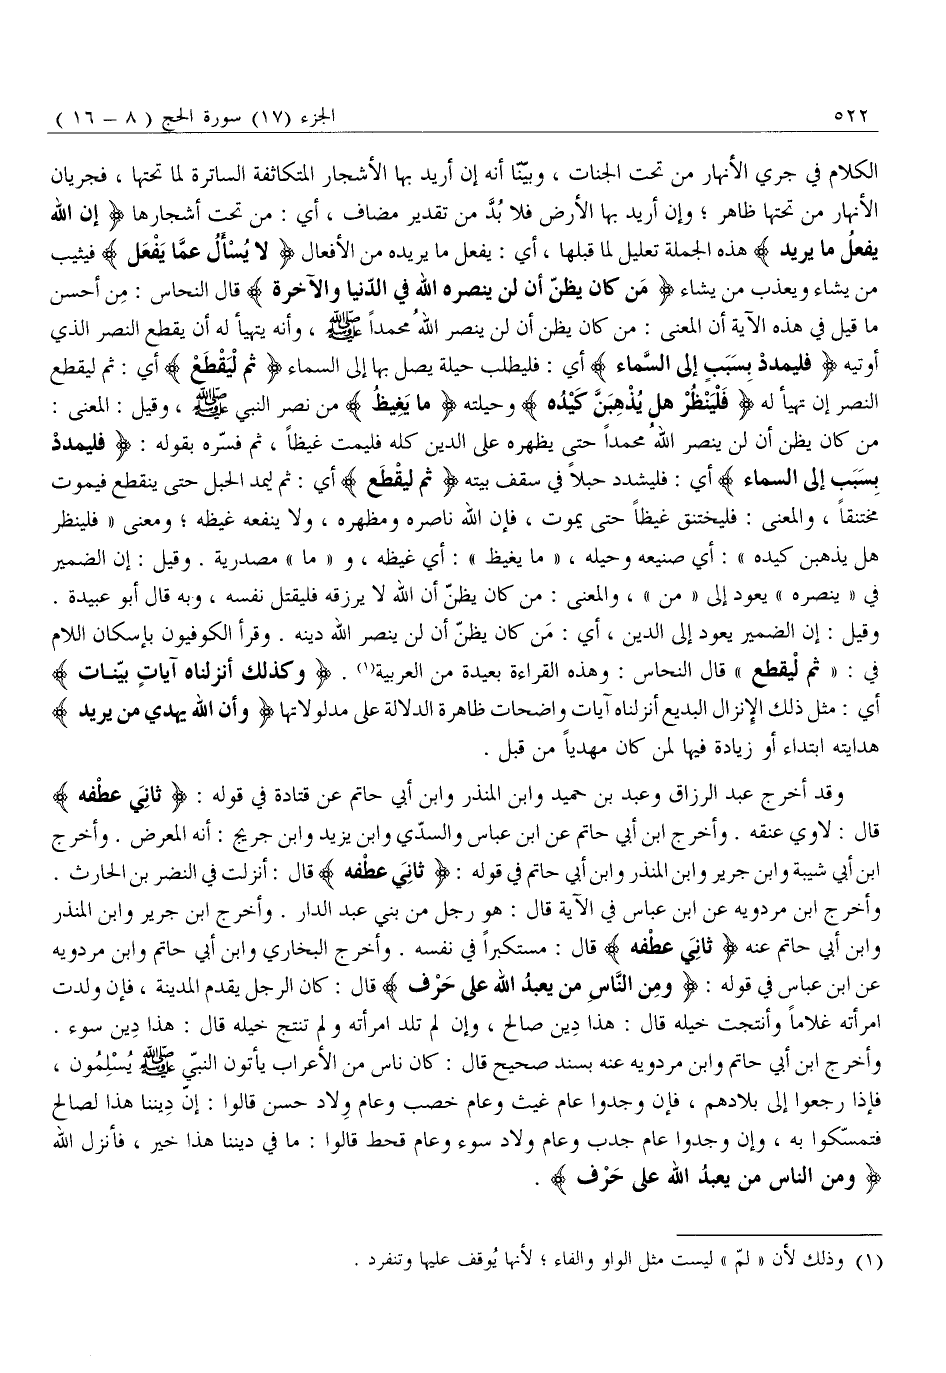 ٥٢٢ الجزء (١٧) سورة الحج ( ٨ – ١٦ )
الكلام في جري الأنهار من تحت الجنات ، وبيّنّا أنه إن أريد بها الأشجار المتكاثفة الساترة لما تحتها ، فجريان
الأنهار من تحتها ظاهر ؛ وإن أريد بها الأرض فلا بُدَّ من تقدير مضاف ، أي : من تحت أشجارها ﴿ إن الله
يفعلُ ما يريد ﴾ هذه الجملة تعليل لما قبلها ، أي : يفعل ما يريده من الأفعال ﴿ لا يُسْأَلُ عمَّا يَفْعَل ﴾ فيثيب
من يشاء ويعذب من يشاء ﴿ مَن كان يظنّ أن لن ينصره الله في الدّنيا والآخرة ﴾ قال النحاس : مِن أحسن
ما قيل في هذه الآية أن المعنى : من كان يظن أن لن ينصر اللهُ محمداً ﷺ ، وأنه يتهيأ له أن يقطع النصر الذي
أوتيه ﴿ فليمددْ بِسَبَبٍ إلى السَّماء ﴾ أي : فليطلب حيلة يصل بها إلى السماء ﴿ ثم لْيَقْطَعْ ﴾ أي : ثم ليقطع
النصر إن تهيأ له ﴿ فَلْيَنْظُرْ هل يُذْهِبَنَّ كَيْدُه ﴾ وحيلته ﴿ ما يَغيظُ ﴾ من نصر النبي ﷺ ، وقيل : المعنى :
من كان يظن أن لن ينصر اللهُ محمداً حتى يظهره على الدين كله فليمت غيظاً ، ثم فسّره بقوله : ﴿ فليمددْ
بِسَبَب إلى السماء ﴾ أي : فليشدد حبلاً في سقف بيته ﴿ ثم ليقْطَع ﴾ أي : ثم ليمد الحبل حتى ينقطع فيموت
مختنقاً ، والمعنى : فليختنق غيظاً حتى يموت ، فإن الله ناصره ومظهره ، ولا ينفعه غيظه ؛ ومعنى « فلينظر
هل يذهبن كيده » : أي صنيعه وحيله ، « ما يغيظ » : أي غيظه ، و « ما » مصدرية . وقيل : إن الضمير
في « ينصره » يعود إلى « من » ، والمعنى : من كان يظنّ أن الله لا يرزقه فليقتل نفسه ، وبه قال أبو عبيدة .
وقيل : إن الضمير يعود إلى الدين ، أي : مَن كان يظنّ أن لن ينصر الله دينه . وقرأ الكوفيون بإسكان اللام
في : « ثم لْيقطع » قال النحاس : وهذه القراءة بعيدة من العربية(١) . ﴿ وكذلك أنزلناه آياتٍ بيّنات ﴾
أي : مثل ذلك الإنزال البديع أنزلناه آيات واضحات ظاهرة الدلالة على مدلولاتها ﴿ وأن الله يهدي من يريد ﴾
هدايته ابتداء أو زيادة فيها لمن كان مهدياً من قبل .
وقد أخرج عبد الرزاق وعبد بن حميد وابن المنذر وابن أبي حاتم عن قتادة في قوله : ﴿ ثانيَ عطْفه ﴾
قال : لاوي عنقه . وأخرج ابن أبي حاتم عن ابن عباس والسدّي وابن يزيد وابن جريج : أنه المعرض . وأخرج
ابن أبي شيبة وابن جرير وابن المنذر وابن أبي حاتم في قوله : ﴿ ثانيَ عطْفه ﴾ قال : أنزلت في النضر بن الحارث .
وأخرج ابن مردويه عن ابن عباس في الآية قال : هو رجل من بني عبد الدار . وأخرج ابن جرير وابن المنذر
وابن أبي حاتم عنه ﴿ ثانيَ عطْفه ﴾ قال : مستكبراً في نفسه . وأخرج البخاري وابن أبي حاتم وابن مردويه
عن ابن عباس في قوله : ﴿ ومِن النَّاسِ من يعبدُ الله على حَرْف ﴾ قال : كان الرجل يقدم المدينة ، فإن ولدت
امرأته غلاماً وأنتجت خيله قال : هذا دِين صالح ، وإن لم تلد امرأته ولم تنتج خيله قال : هذا دِين سوء .
وأخرج ابن أبي حاتم وابن مردويه عنه بسند صحيح قال : كان ناس من الأعراب يأتون النبيّ ﷺ يُسْلِمُون ،
فإذا رجعوا إلى بلادهم ، فإن وجدوا عام غيث وعام خصب وعام وِلاد حسن قالوا : إنّ دِيننا هذا لصالح
فتمسّكوا به ، وإن وجدوا عام جدب وعام ولاد سوء وعام قحط قالوا : ما في ديننا هذا خير ، فأنزل الله
﴿ ومن الناس من يعبدُ الله على حَرْف ﴾ .
(١) وذلك لأن « لمّ » ليست مثل الواو والفاء ؛ لأنها يُوقف عليها وتنفرد .